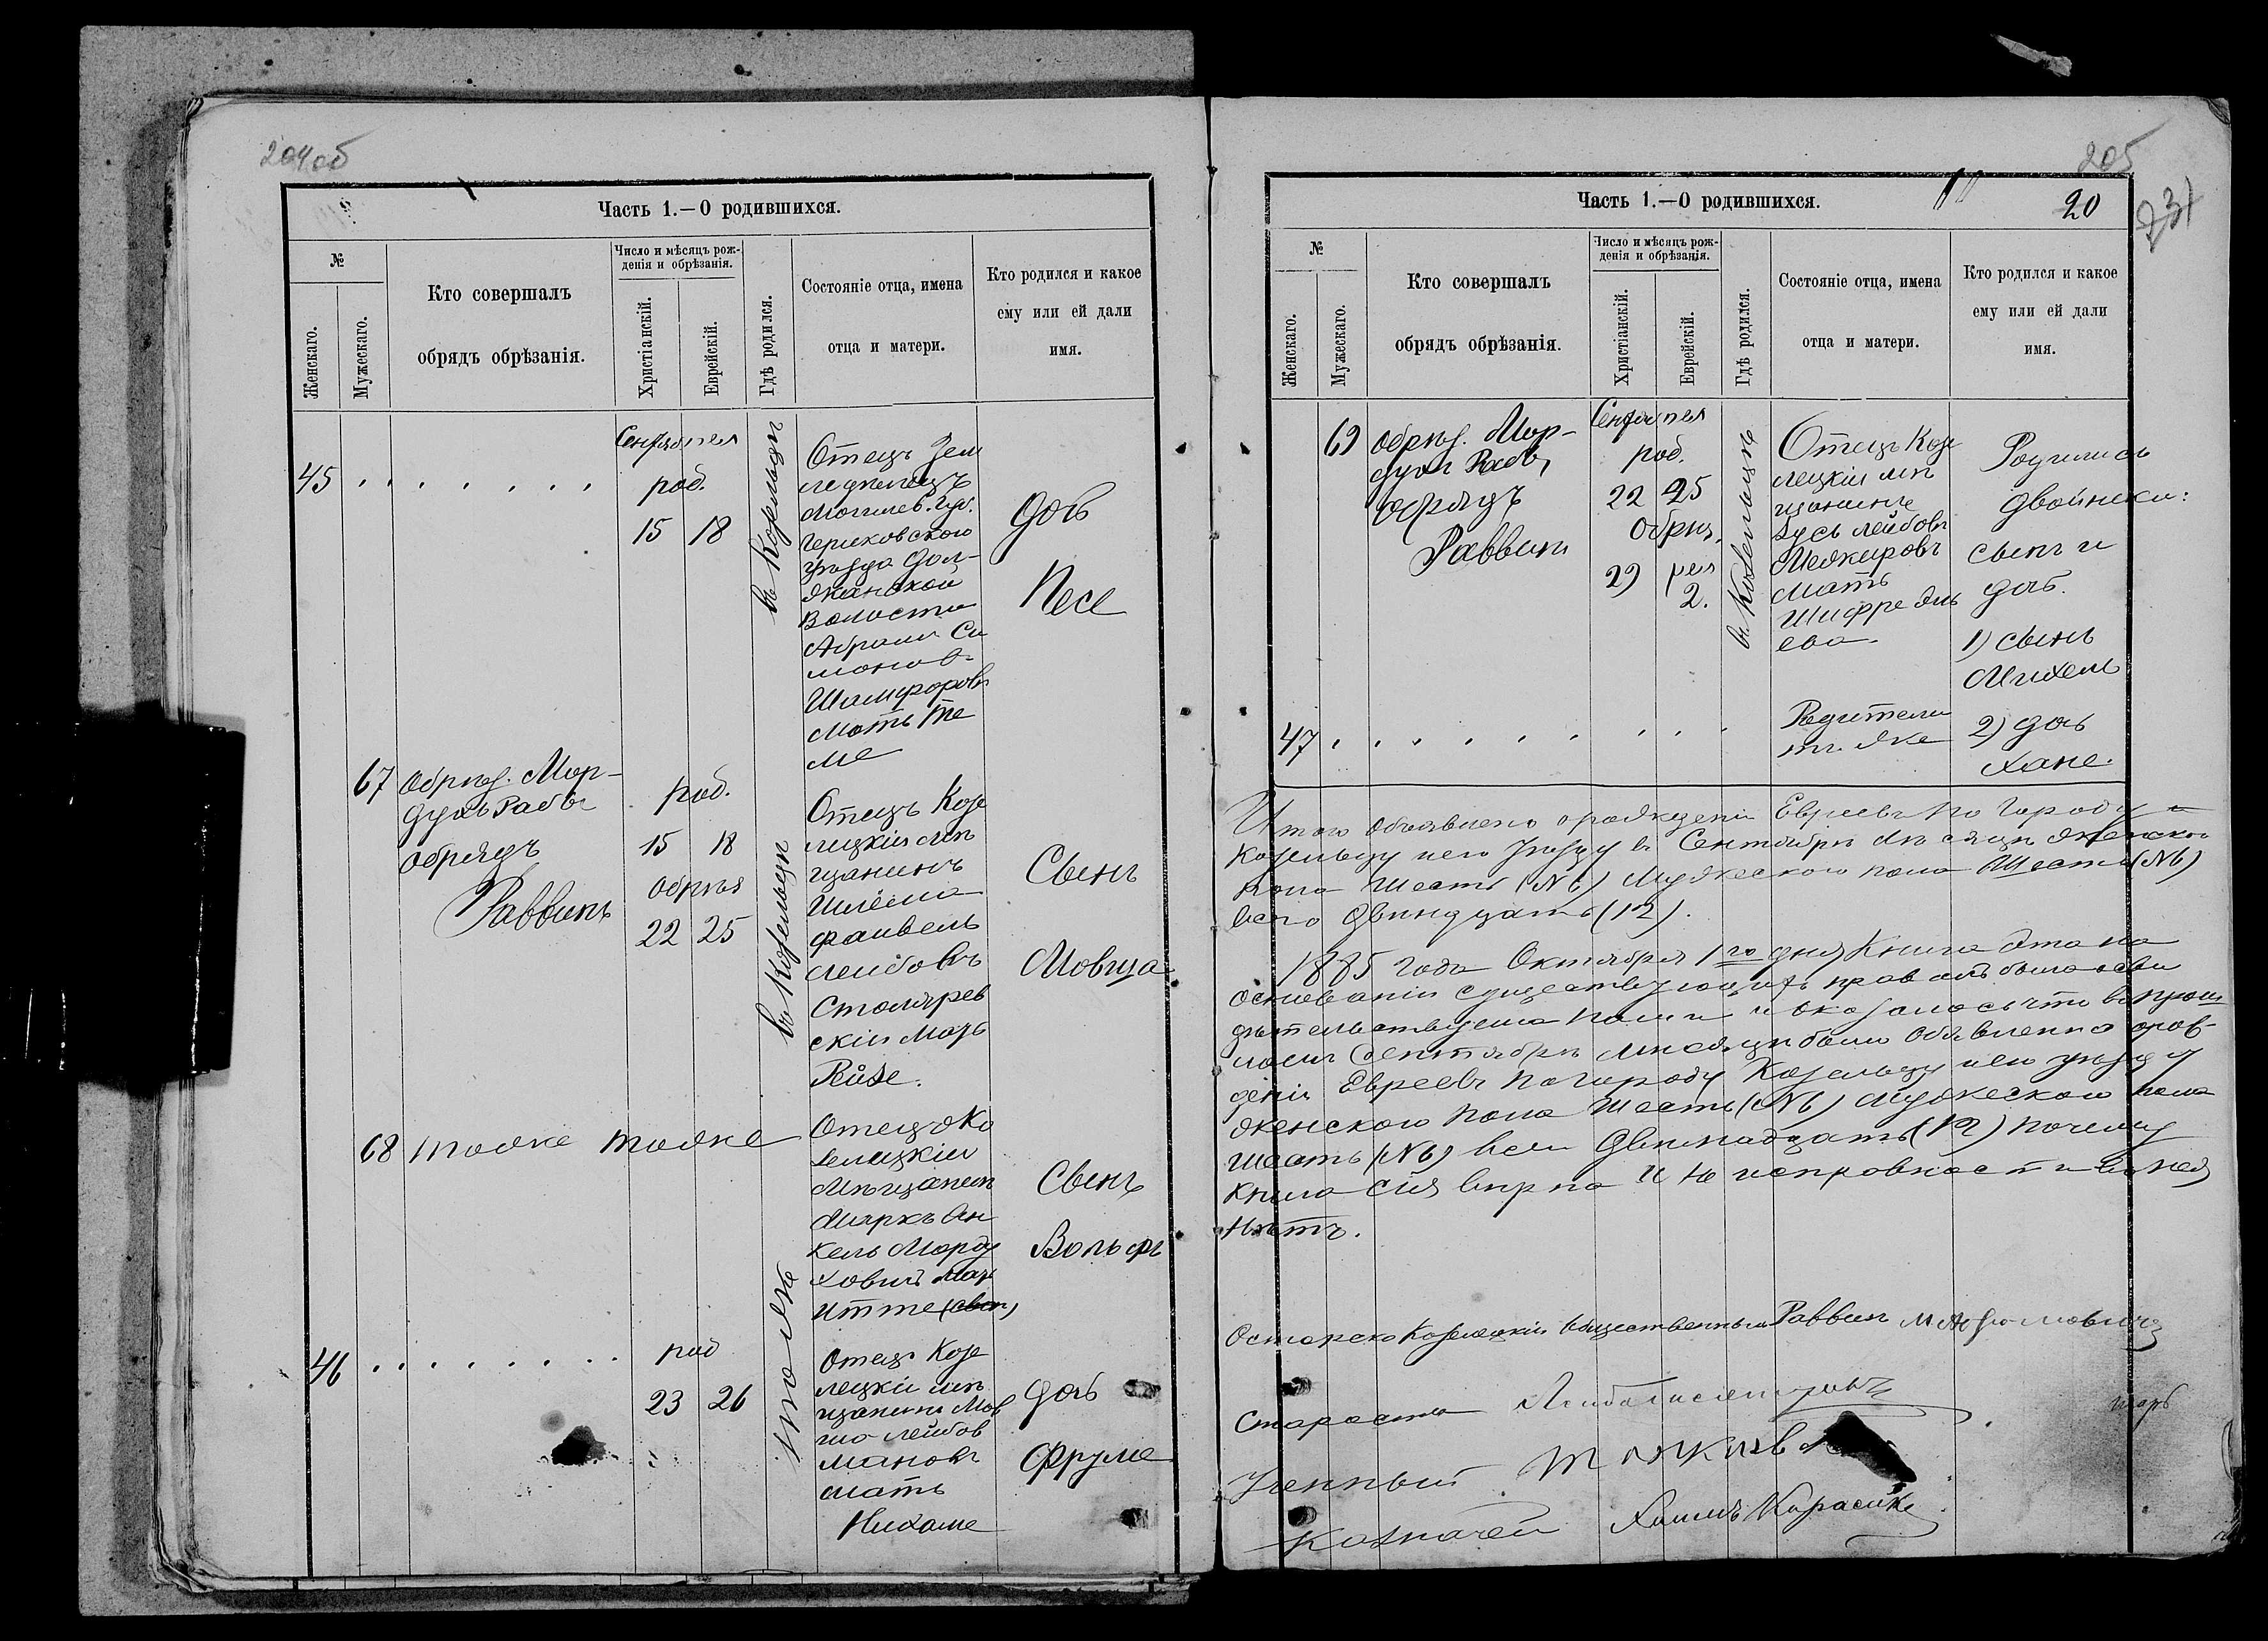 204об
Часть 1.—О родившихся.
№
Женскаго.
Мужескаго.
Кто совершалъ
обрядъ обрѣзанія.
Число и мѣсяцъ рож-
денія и обрѣзанія.
Христіанскій.
Еврейскій.
Гдѣ родился.
Состояніе отца, имена
отца и матери.
Кто родился и какое
ему или ей дали
имя.
45
Сентября
род.
15 18
въ Козельцѣ
Отецъ Зем
ледѣлецъ
Могилев. Губ.
Чериковскаго
уѣзда Дол-
жанской
Волости
Абрамъ Си
монов
Мать Те
ме
дочь
Песе
67
обрѣз. Мор-
духъ Рабъ
обрядъ
Раввинъ
род.
15 18
обрѣз
22 25
въ Козельцѣ
Отецъ Козе
лецкій мѣ
щанинъ
Шлёма
Файвель
Лейбовъ
Столярев
скій Мать
Рейзе.
Сынъ
Мовша
68 тоже тоже
тоже
Отецъ Ко
зелецкій
Мѣщанин
Моркъ Ян
кель Морду
ховичъ Мат
Итте
Сынъ
Вольфъ
46
род
23 26
Отецъ Козе
лецкій мѣ
щанинъ Мов
ша Лейбов
мановъ
мать
Нихаме
дочь
Фруме
205
Часть 1.—О родившихся.
20
231
№
Женскаго.
Мужескаго.
Кто совершалъ
обрядъ обрѣзанія.
Число и мѣсяцъ рож-
денія и обрѣзанія.
Христіанскій.
Еврейскій.
Гдѣ родился.
Состояніе отца, имена
отца и матери.
Кто родился и какое
ему или ей дали
имя.
69
обрѣз. Мор-
духъ Рабъ,
обрядъ
Раввинъ
Сентября
род.
22 25
Обрѣз.
29
2.
въ Козельцѣ
Отецъ Козе
лецкій мѣ
щанинъ
Зусь Лейбовъ
Межировъ
Мать
Шифре Эль
ева
Родились
двойнеки:
сынъ и
дочь.
1) сынъ
Михель
47
Родители
тѣ же
2) дочь
Хане.
Итого объявлено о рожденіи Евреевъ по Городу
Козельцу и его уѣзду въ Сентябрѣ мѣсяцѣ женского
пола Шесть (№6) Мужескаго пола Шесть (№6)
всего двѣнадцать (12).
1885 года Октября 1го дня Книга эта на
основаніи существующихъ правилъ была осви
дѣтельствуема нами и оказалось что въ прош
ломъ Сентябрѣ мѣсяцѣ было объявленно о рож-
деніи Евреевъ по городу Козельцу и его уѣзду
женского пола Шесть (№6) Мужескаго пола
шесть (№6) всего двѣнадцать (12) почему
книга сія вѣрна и не исправности въ ней
нѣтъ.
Остерско Козелецкій общественный Раввинъ
Староста
Ученный
Казначей Хаимъ Карасикъ